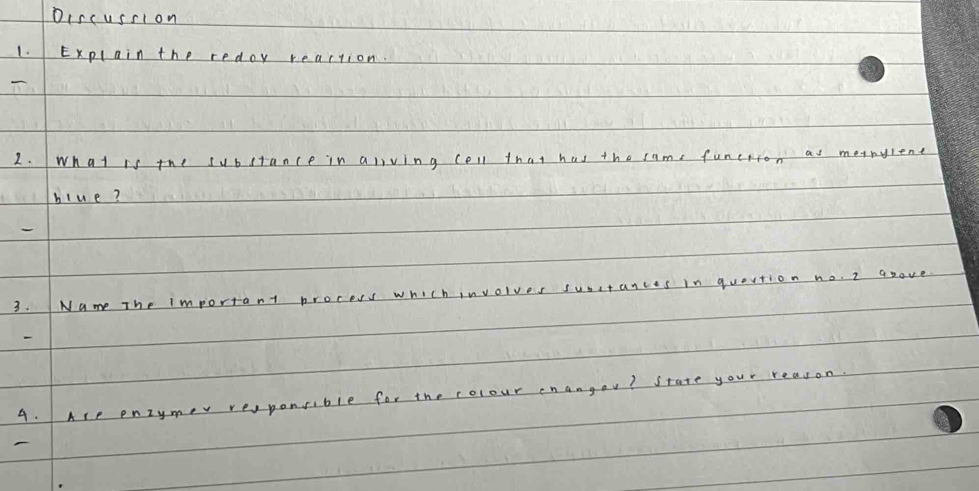 Discussion
1. Explain the redox reaction.
–
2. What is the substance in a living cell that has the same function as methylene
blue?
–
3. Name The important process which involves substances in question no. 2 above.
–
4. Are enzymes responsible for the colour changes? State your reason.
–